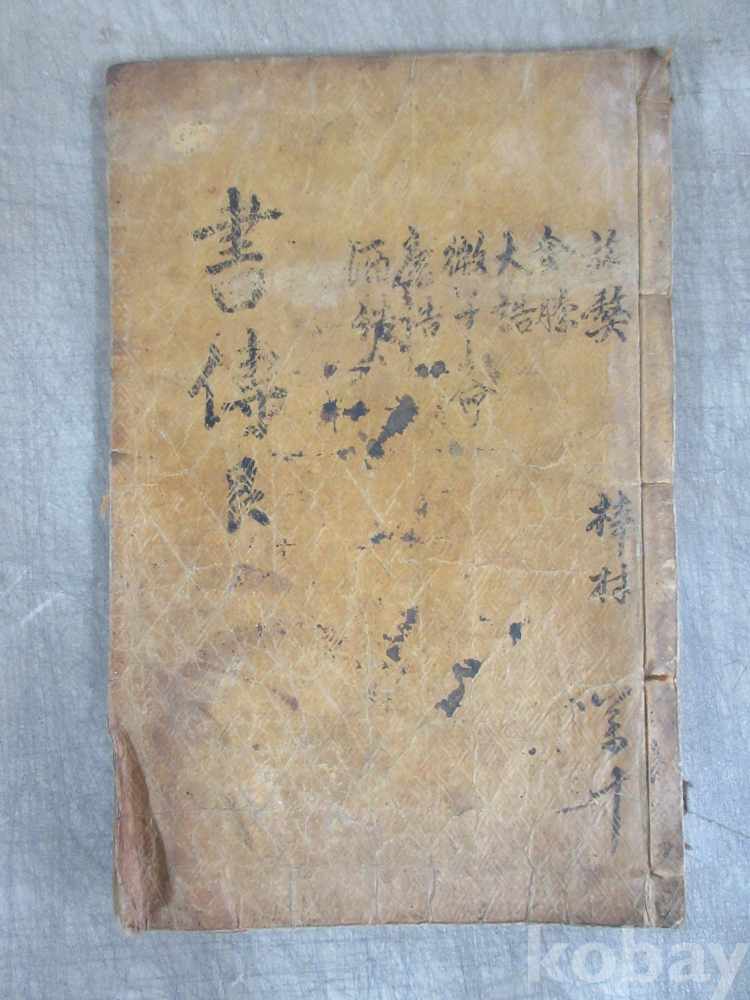 旅獒
梓材
金縢
大誥
微子之命
康誥
酒誥
書傳 艮
kobay